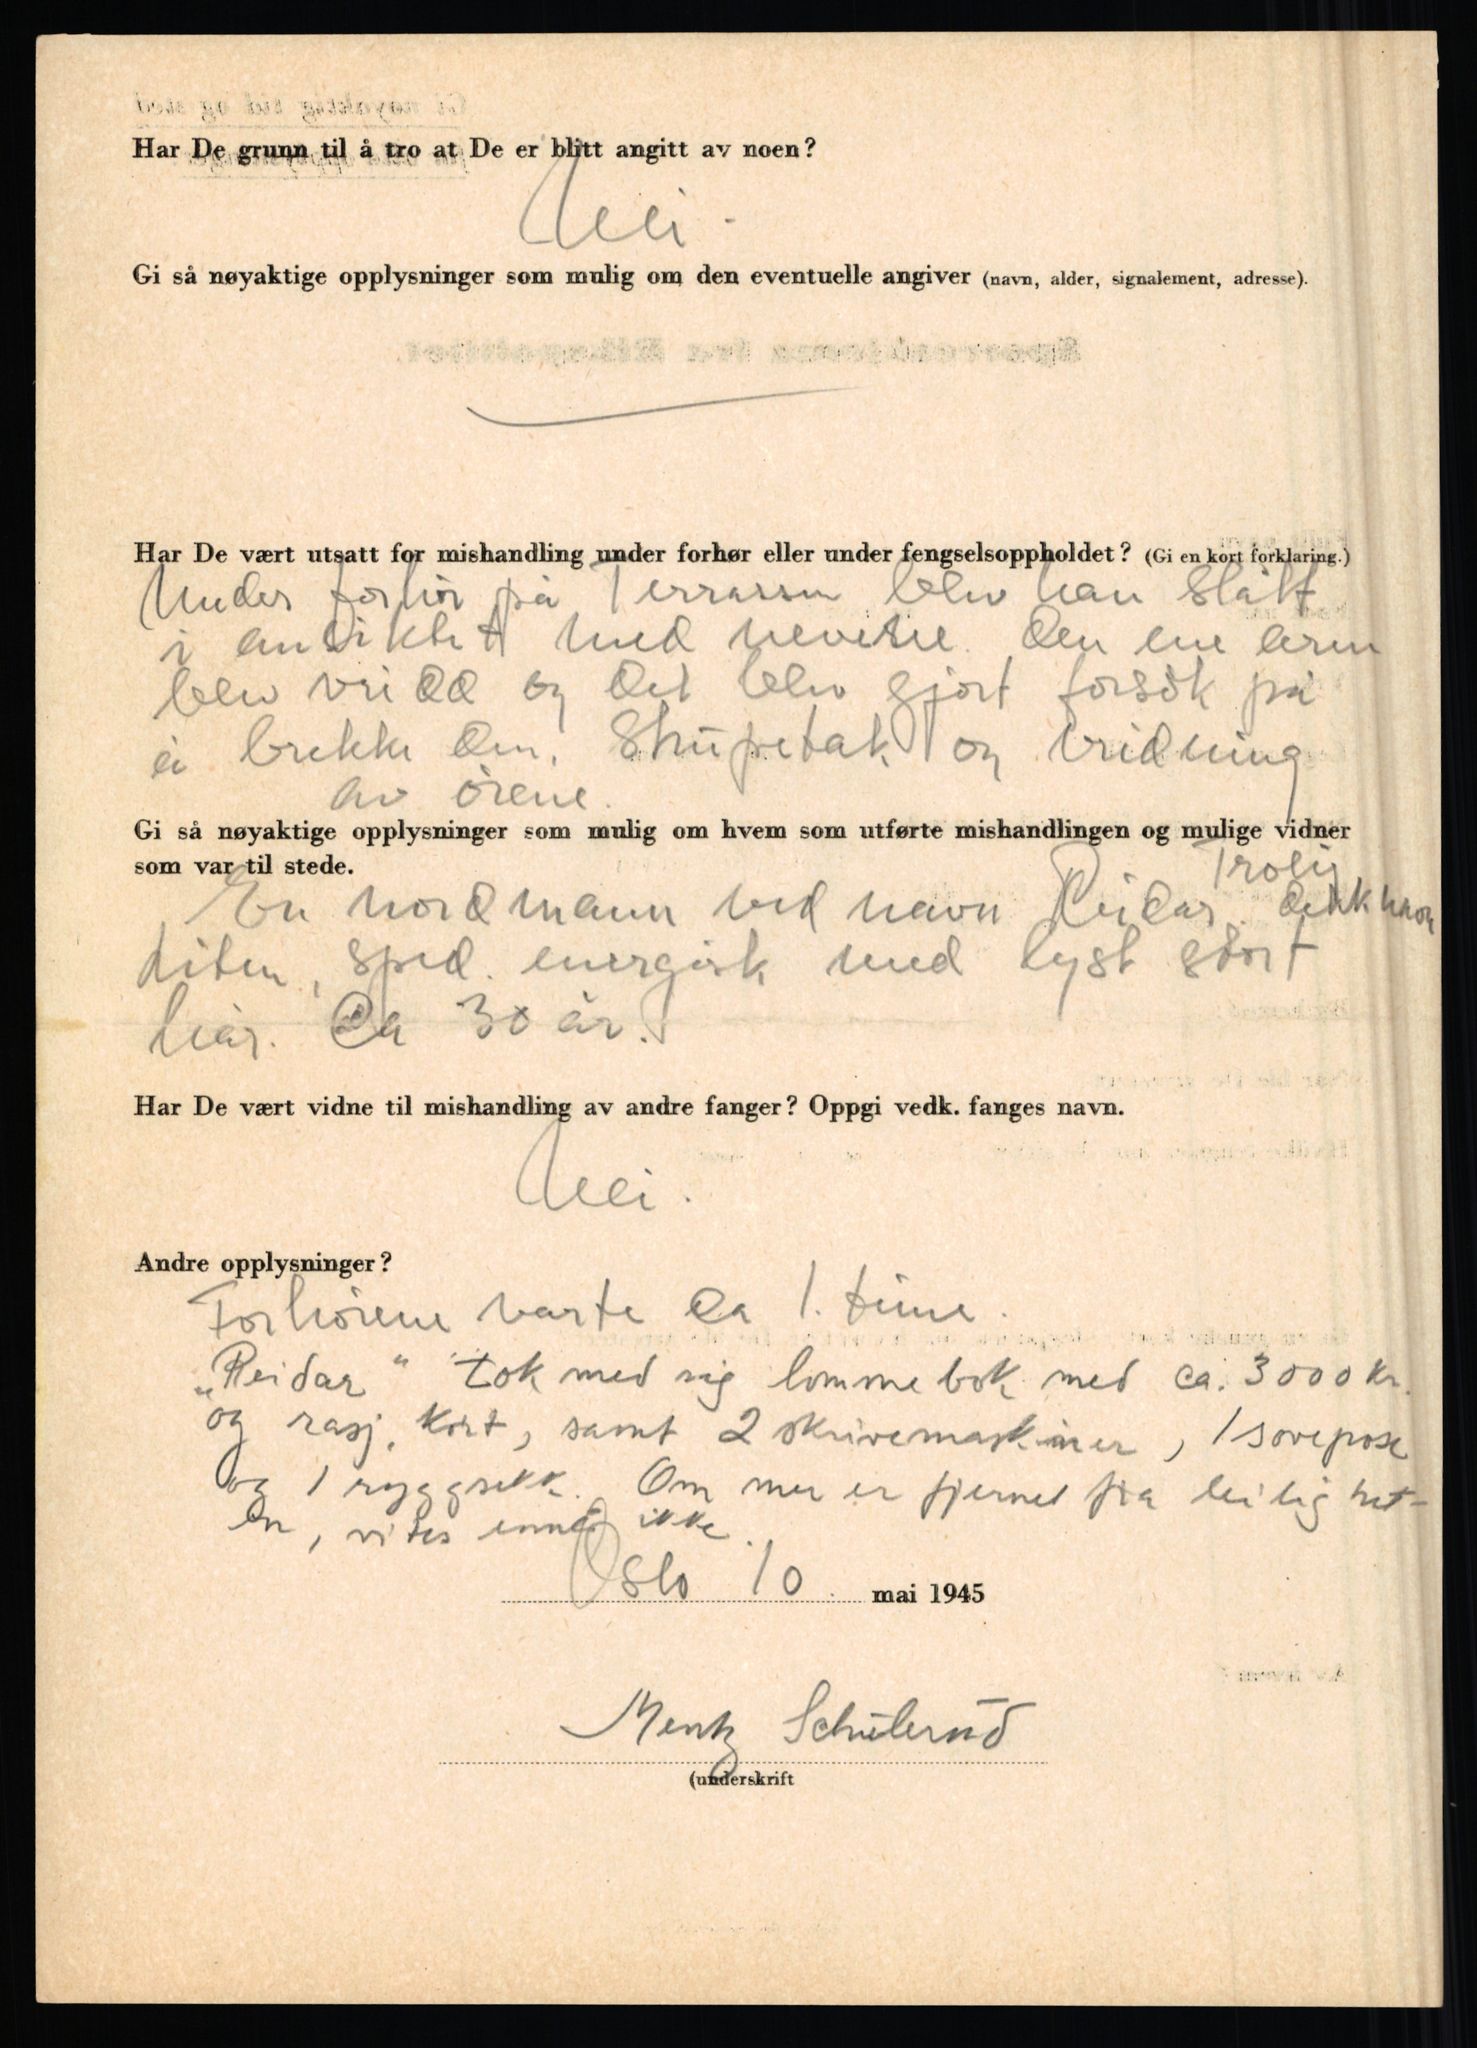 Har De grunn til å tro at De er blitt angitt av noen?
Nei.
Gi så nøyaktige opplysninger som mulig om den eventuelle angiver (navn, alder, signalement, adresse).
Har De vært utsatt for mishandling under forhør eller under fengselsoppholdet? (Gi en kort forklaring.)
Under forhör på Terrassen blev han slått
i ansiktet med nevene. Den ene arm
blev vridd og det blev gjort forsök på
å brekke den. Strupetak og vridning
av örene.
Gi så nøyaktige opplysninger som mulig om hvem som utførte mishandlingen og mulige vidner
som var til stede.
Trolig
En nordmann ved navn Reidar. dekknavn
Liten, sped. energisk med lyst stort
hår. Ca 30 år.
Har De vært vidne til mishandling av andre fanger? Oppgi vedk. fanges navn.
Nei.
Andre opplysninger?
Forhörene varte ca 1. time.
„Reidar" tok med sig lommebok med ca. 3000 kr.
og rasj. kort, samt 2 skrivemaskiner, 1 sovepose
og 1 ryggsekk. Om mer er fjernet fra leilighet-
en, vites ennå ikke.
Oslo 10. mai 1945
Mentz Schulerud
(underskrift